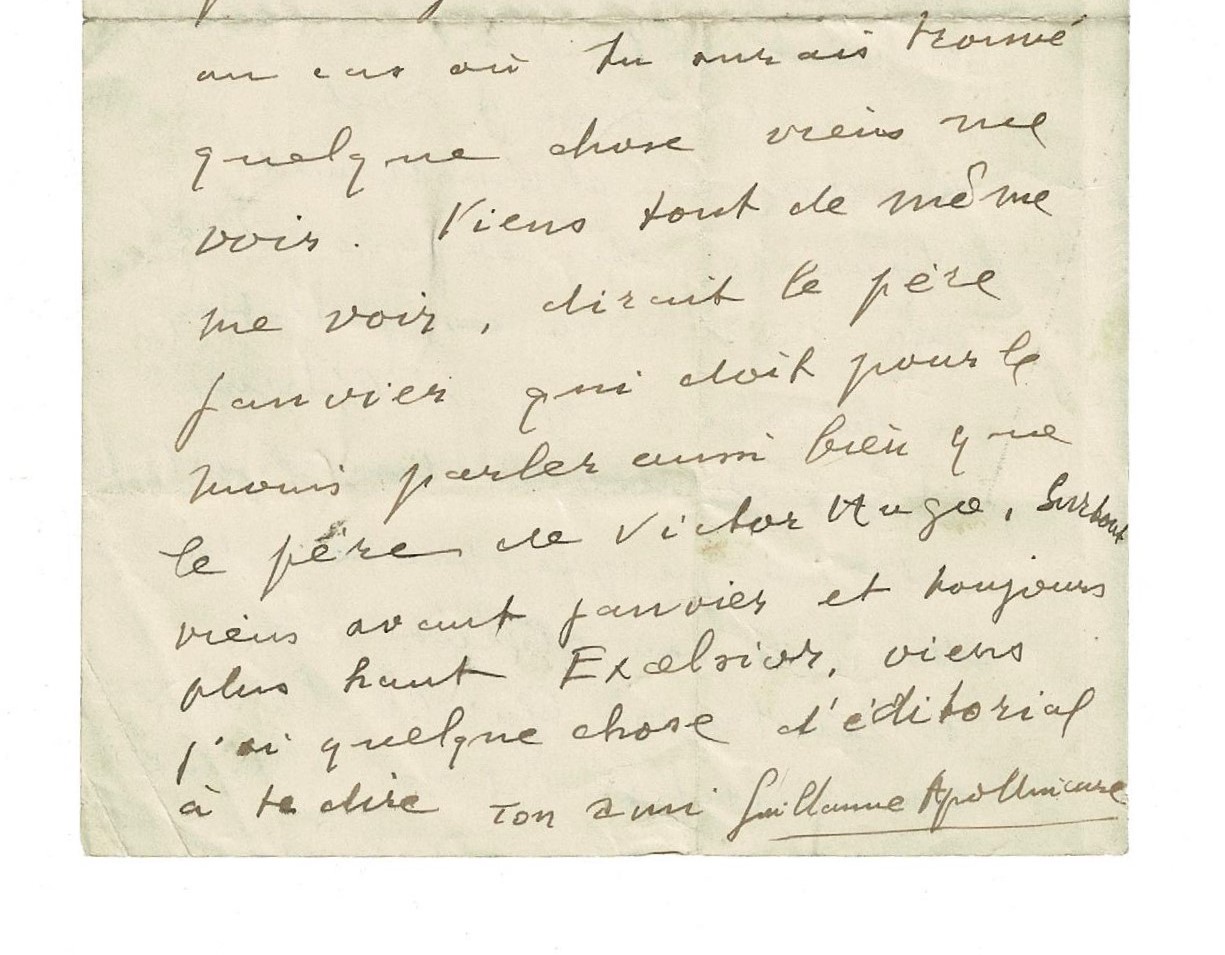 au cas où tu aurais trouvé
quelque chose viens me
voir. Viens tout de même
me voir, dirait le père
janvier qui doit pour le
moins parler aussi bien que
le père de Victor Hugo, Surtout
viens avant janvier et toujours
plus haut Excelsior, viens
j'ai quelque chose d'éditorial
à te dire Ton ami Guillaume Apollinaire